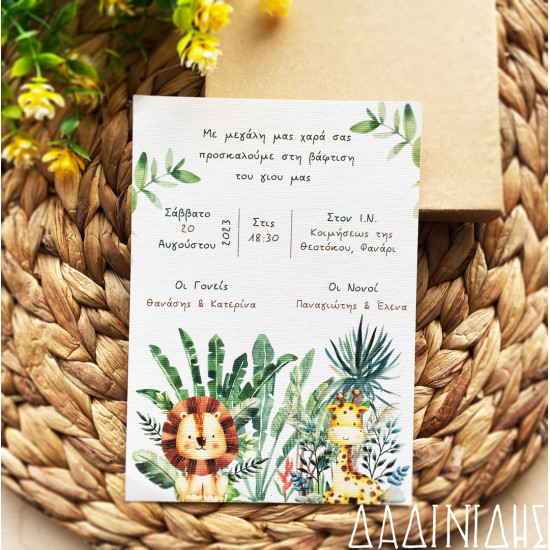 Με μεγάλη μας χαρά σας
προσκαλούμε στη βάφτιση
του γιου μας
Σάββατο
20
Αυγούστου
2023
Στις
18:30
Στον Ι.Ν.
Κοιμήσεως της
Θεοτόκου, Φανάρι
Οι Γονείς
Θανάσης & Κατερίνα
Οι Νονοί
Παναγιώτης & Έλενα
ΔΑΔΙΝΙΔΗΣ